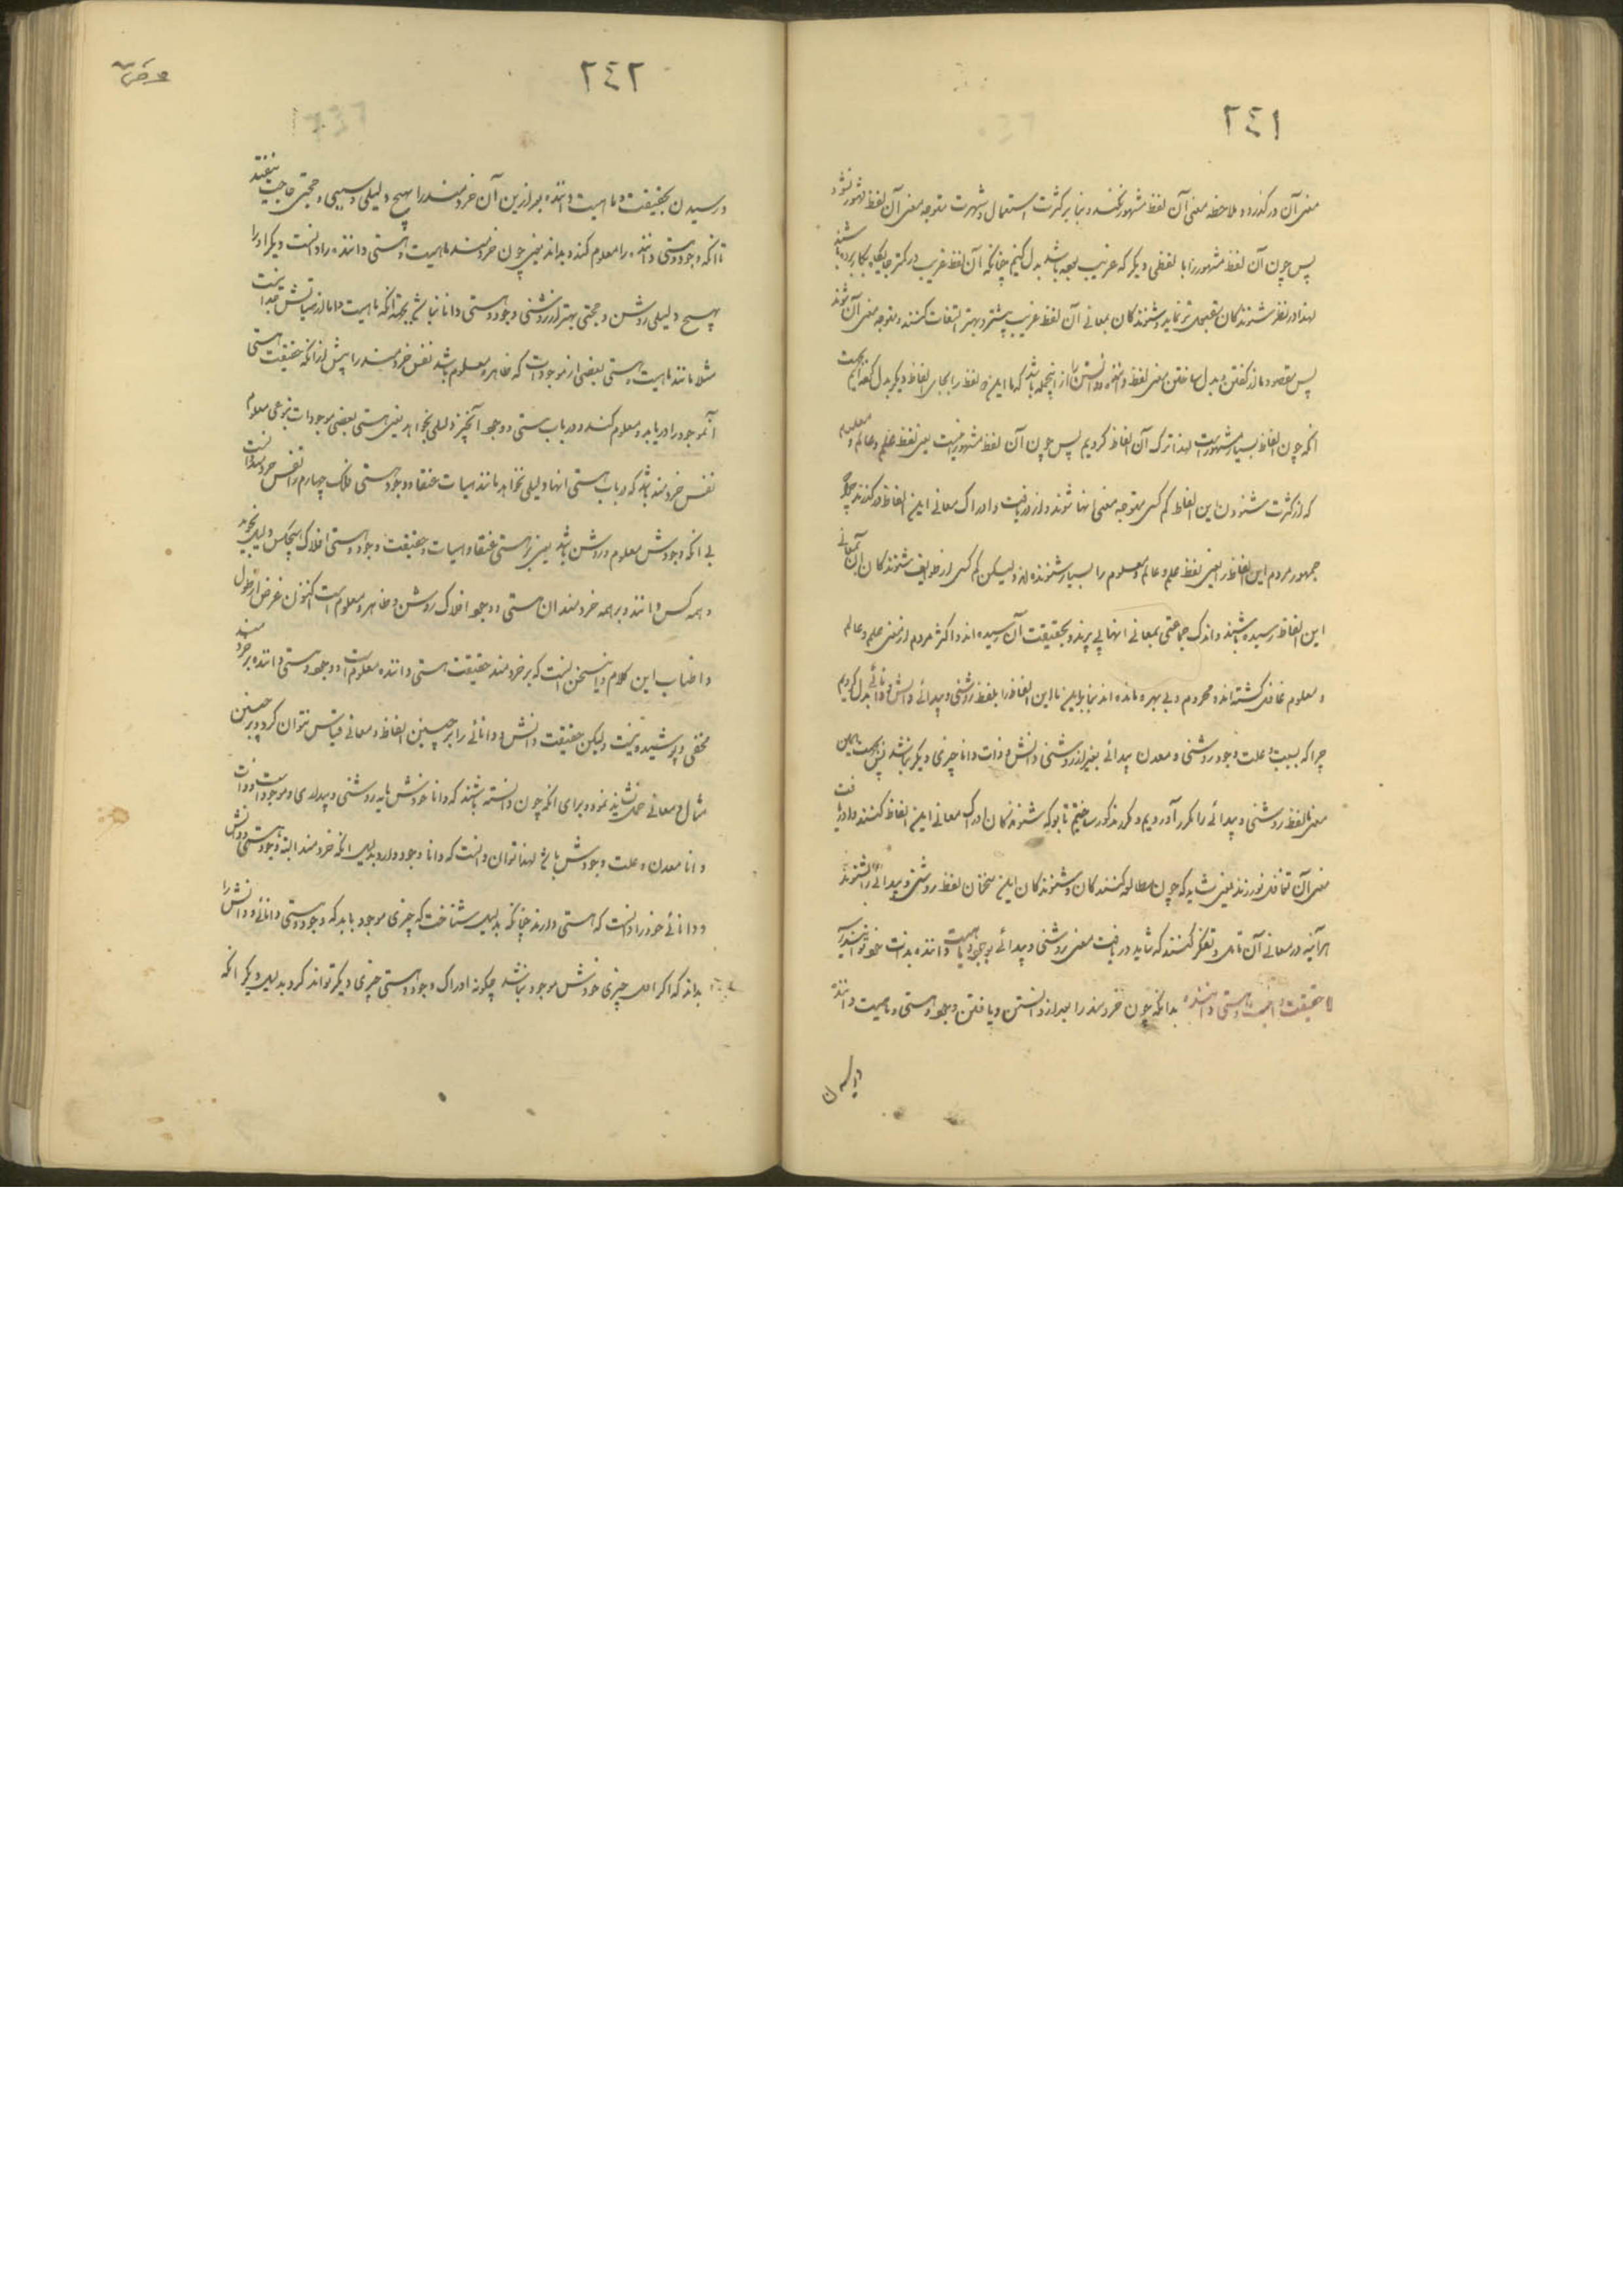 ٢٤١
معنی آن درکذرد و ملاحظه معنی آن لفظ مشهور نکند و بنابر کثرت استعمال و شهرت متوجه معنی آن لفظ مشهور نشود
پس چون آن لفظ مشهور را با لفظی دیکر که غریب بدل کنیم چنانکه آن لفظ غریب در کمتر جایکاه بکار برده باشند
لهذا در نظر شنوندکان نماید و شنوندکان بمعانی آن لفظ غریب بیشتر و بهتر التفات کنند و متوجه معنی آن شوند
پس مقصود ما از کفتن و بدل ساختن معنی لفظ و دانستن را از اینجمله باشد که ما این لفظ را بجای الفاظ دیکر بدل کفته‌ایم بجهت
انکه چون الفاظ بسیار مشهورست لهذا ترک آن الفاظ کردیم پس چون آن لفظ مشهور یعنی لفظ علم و عالم و معلوم
که از کثرت شنودن این الفاظ کم کسی متوجه معنی انها شوند و از دریافت و ادراک معانی این الفاظ درکذرند چراکه
جمهور مردم این الفاظ را یعنی لفظ علم و عالم و معلوم را بسیار شنوده‌اند ولیکن کم کسی از طوایف شنوندکان آن بمعانی
این الفاظ رسیده باشند و اندک جماعتی بمعانی انها پی برند و بحقیقت آن رسیده‌اند و اکثر مردم از معنی علم و عالم
و معلوم غافل کشته‌اند و محروم و بی بهره مانده‌اند بنابراین ما این الفاظ را بلفظ روشنی و پیدائی و دانش و دانائی بدل کردیم
چرا که بسبب و علت وجود روشنی و معدن پیدائی بغیر از روشنی دانش و ذات دانا چیزی دیکر نباشد پس بجهت همین
معنی ما لفظ روشنی و پیدائی را مکرر آوردیم و مکرر مذکور ساختیم تا بوکه شنوندکان ادراک معانی این الفاظ کنند و از دریافت
معنی آن تغافل نورزند یعنی شاید که چون مطالعه کنندکان و شنوندکان این سخنان لفظ روشنی و پیدائی را بشنوند
هرآینه در معانی آن تامل و تفکر کنند که شاید دریافت معنی روشنی و پیدائی بوجود و ماهیت داننده بذات خود توانند رسید
حقیقت و ماهیت و هستی داننده بدانکه چون خردمند را بعد از دانستن و یافتن وجود و هستی و ماهیت داننده
و رسیدن
٢٤٢
و رسیدن بحقیقت و ماهیت داننده بعد ازین آن خردمند را بهیچ دلیلی و سببی و حجتی حاجت نیفتد
تا انکه وجود و هستی داننده را معلوم کند و بداند یعنی چون خردمند ماهیت و هستی داننده را دانست دیکر او را
بهیچ دلیلی روشن و حجتی بهتر از روشنی وجود و هستی دانا نباشد بجهة انکه ماهیت دانا از جدا نیست
مثلا مانند ماهیت و هستی بعضی از موجودات که ظاهر و معلوم باشد نفس خردمند را پیش از انکه حقیقت هستی
آنموجود را دریابد و معلوم کند و در باب هستی و وجود آنچیز دلیلی نخواهد یعنی هستی بعضی موجودات بنوعی معلوم
نفس خردمند باشد که در باب هستی انها دلیلی نخواهد مانند هیات عنقا و وجود هستی فلک چهارم را نفس خردمند دانست
بی انکه وجودش معلوم و روشن باشد یعنی بر هستی عنقا و هیات و حقیقت وجود و هستی افلاک هیچکس دلیل نجوید
و همه کس دانند و بر همه خردمندان هستی و وجود افلاک روشن و ظاهر و معلوم است اکنون غرض از طول
و اطناب این کلام و سخن انست که بر خردمند حقیقت هستی داننده معلوم است و وجود و هستی داننده بر خردمند
مخفی و پوشیده نیست ولیکن حقیقت دانش و دانائی را بر چنین الفاظ و معانی قیاس نتوان کرد و بر چنین
مثال و معانی حمل نشاید نمود برای انکه چون دانسته باشند که دانا خودش مایه روشنی و پیدائی و موجودات است و ذات
دانا معدن و علت وجودش باشد لهذا توان دانست که دانا وجود دارد بدلیل انکه خردمند البته وجود هستی و دانش
و دانائی خود را دانست که هستی دارند چنانکه بدلیل شناخت که چیزی موجود باید که وجود و هستی دانائی و دانش را
بداند که اکر اصل چیزی خودش موجود نباشد چکونه ادراک وجود و هستی چیزی دیکر تواند کرد بدلیل دیکر انکه